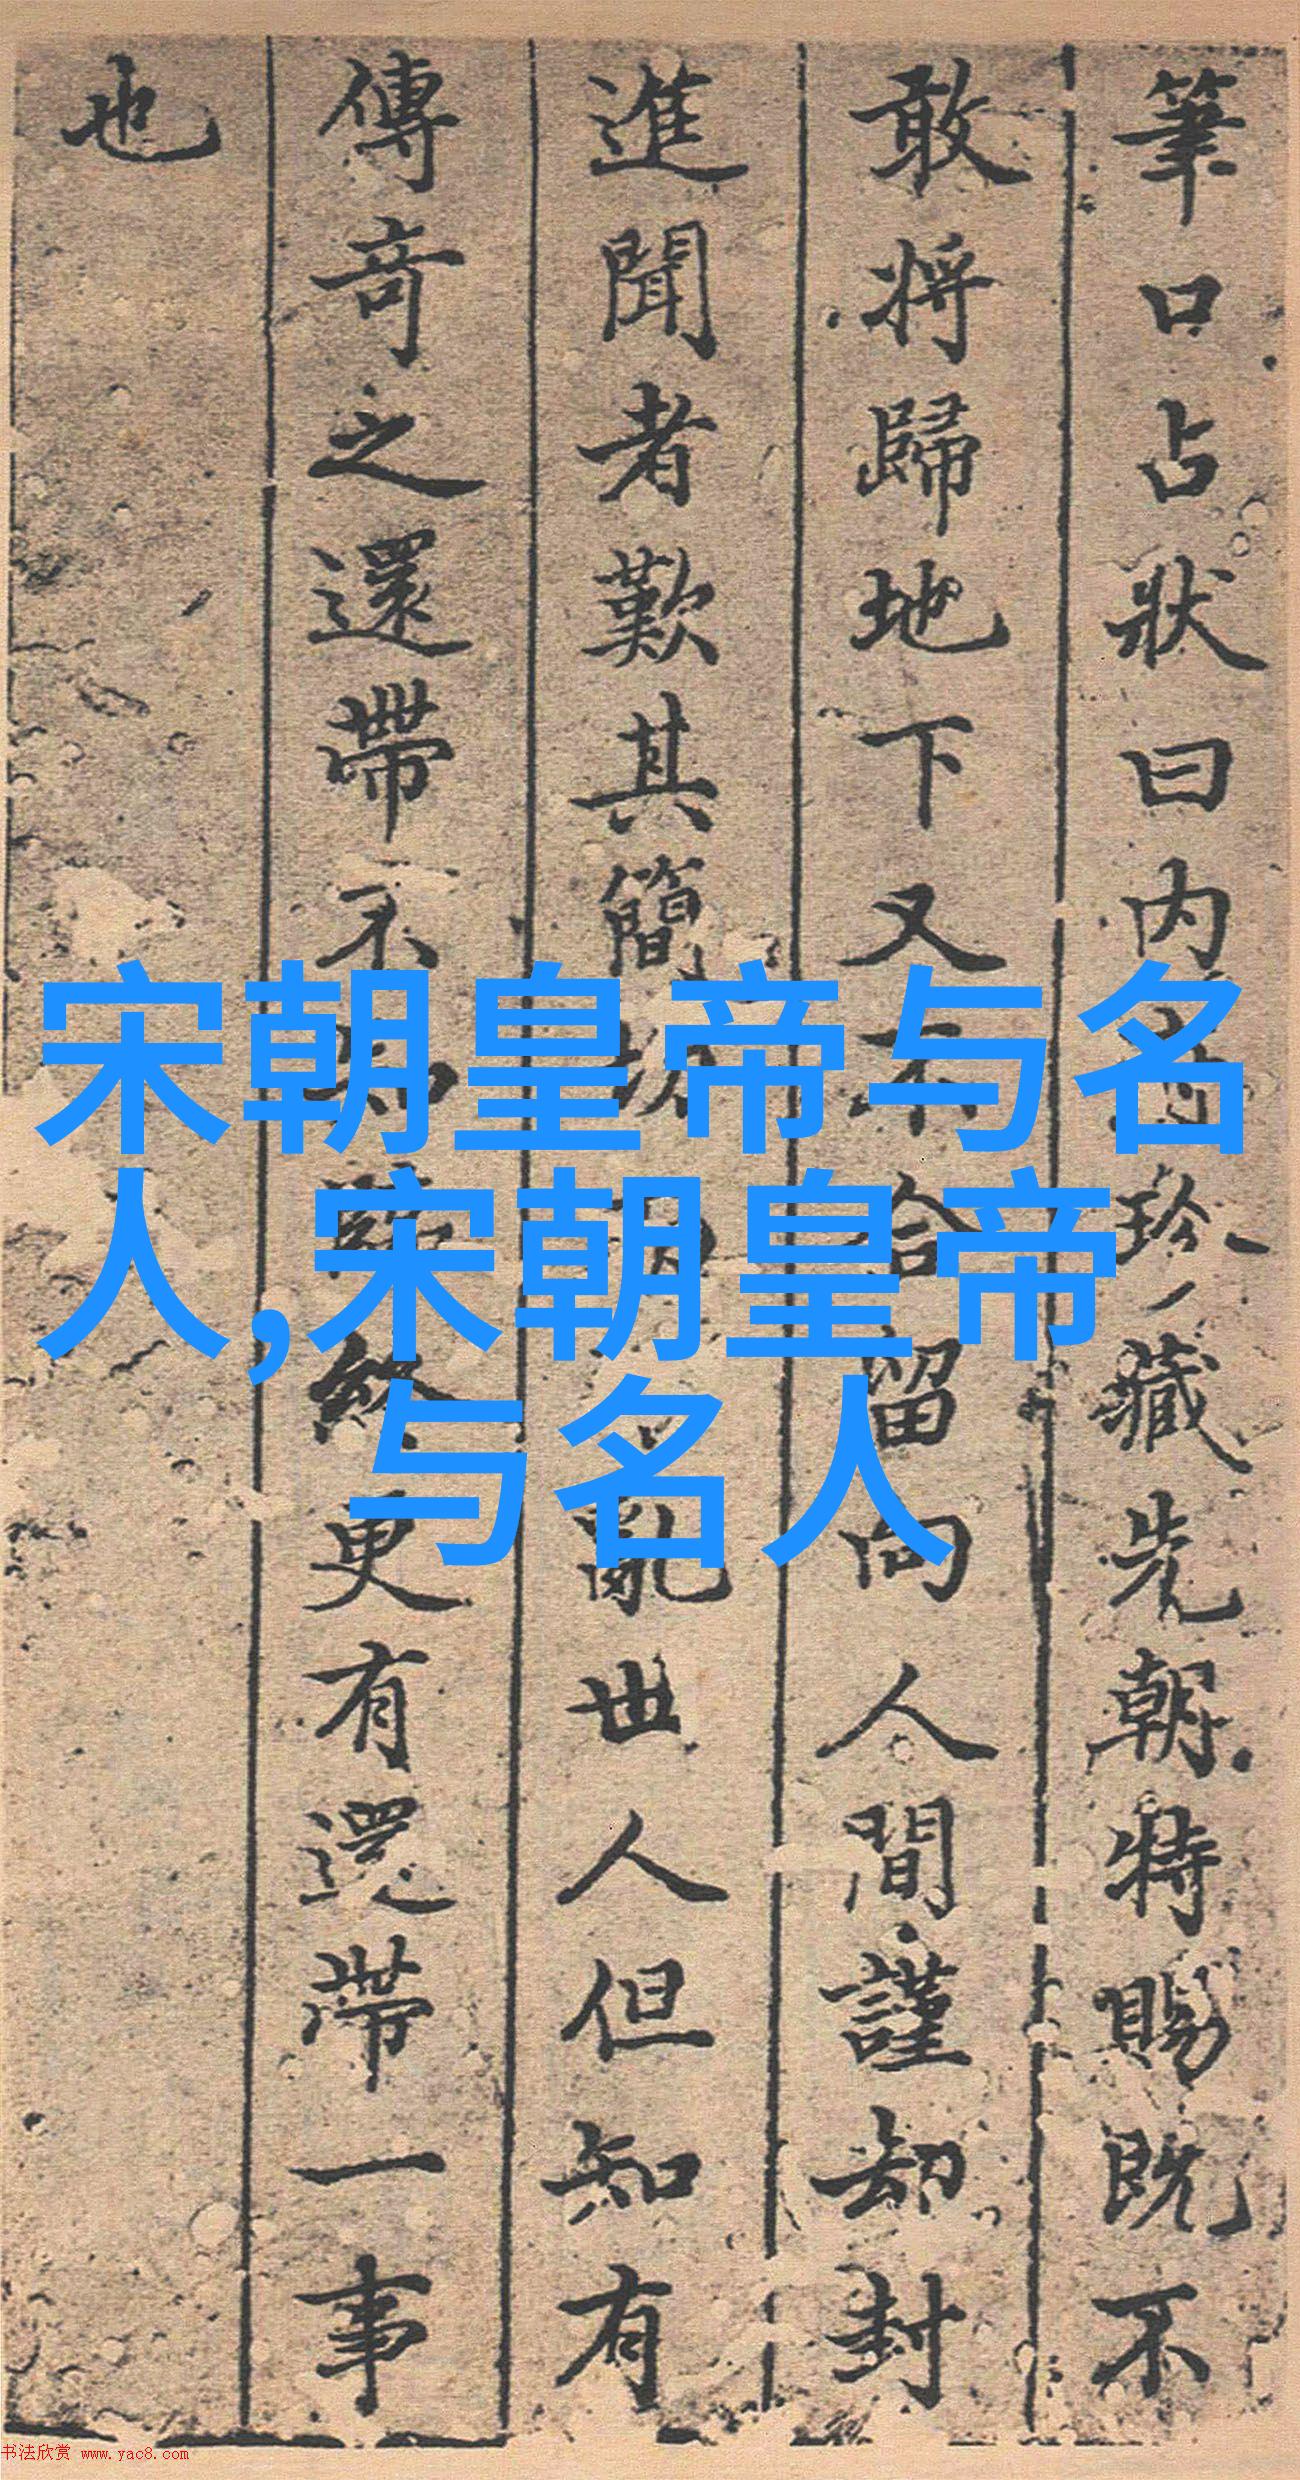 筆口占狀曰内珍藏先朝特賜既不
敢將歸地下又不合留向人間謹却封
進聞者歎其簡切亂世人但知有
傳奇之還帶不知終更有還帶一事
也
宋朝皇帝与名
人,宋朝皇帝
与名人
书法欣赏 www.yac8.com